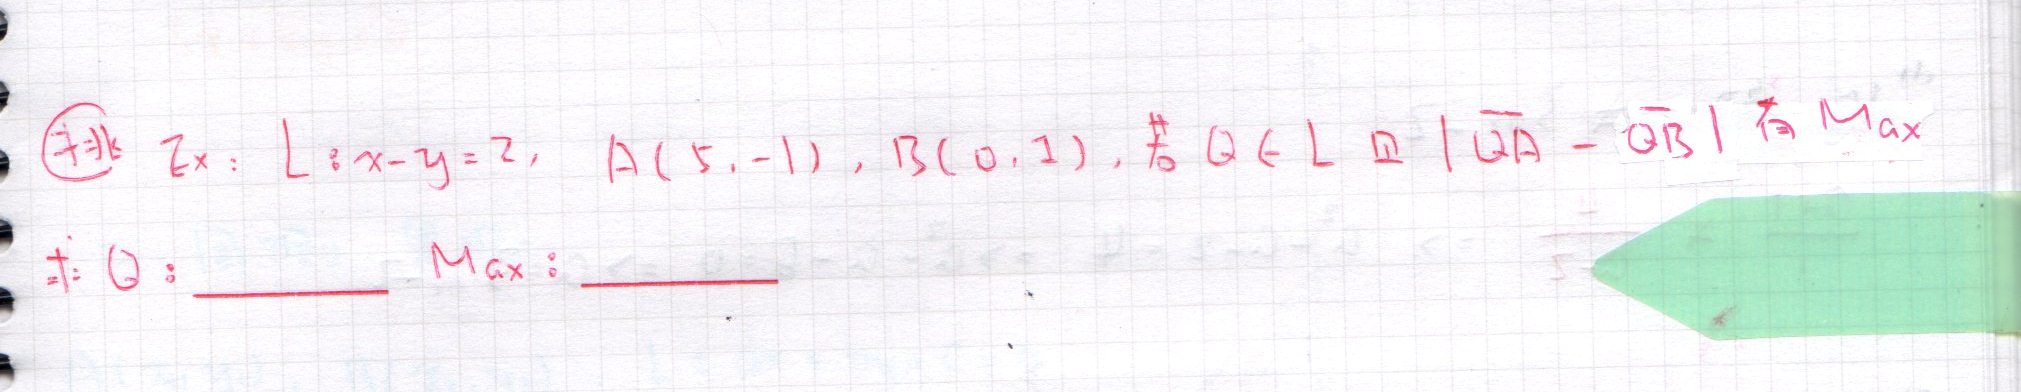 Ex: L: x-y=2, A(5,-1), B(0,1), 若 Q∈L 且 |QA̅ - QB̅| 有 Max
求 Q: ______ Max: ______